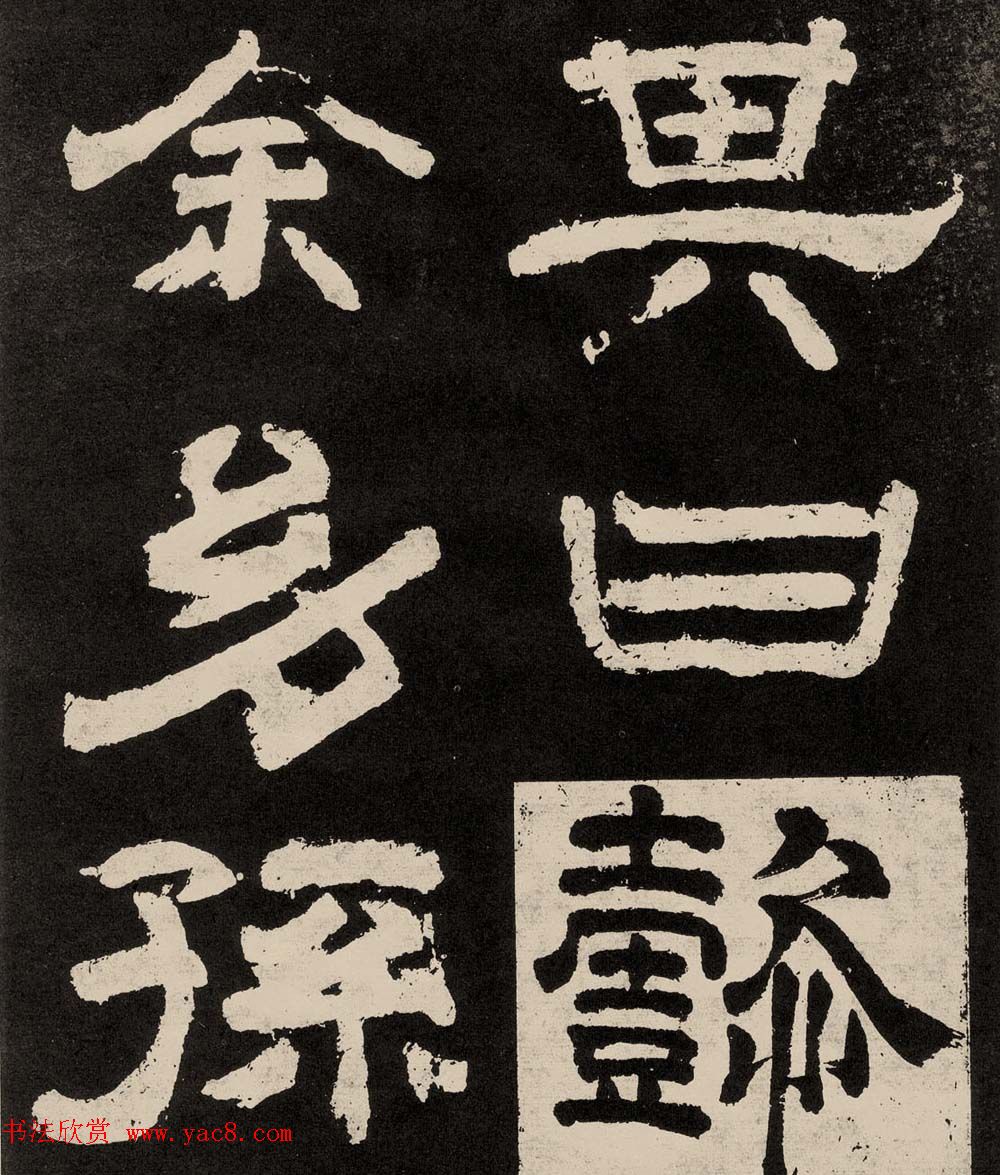 其曰懿
余身孫
书法欣赏 www.yac8.com